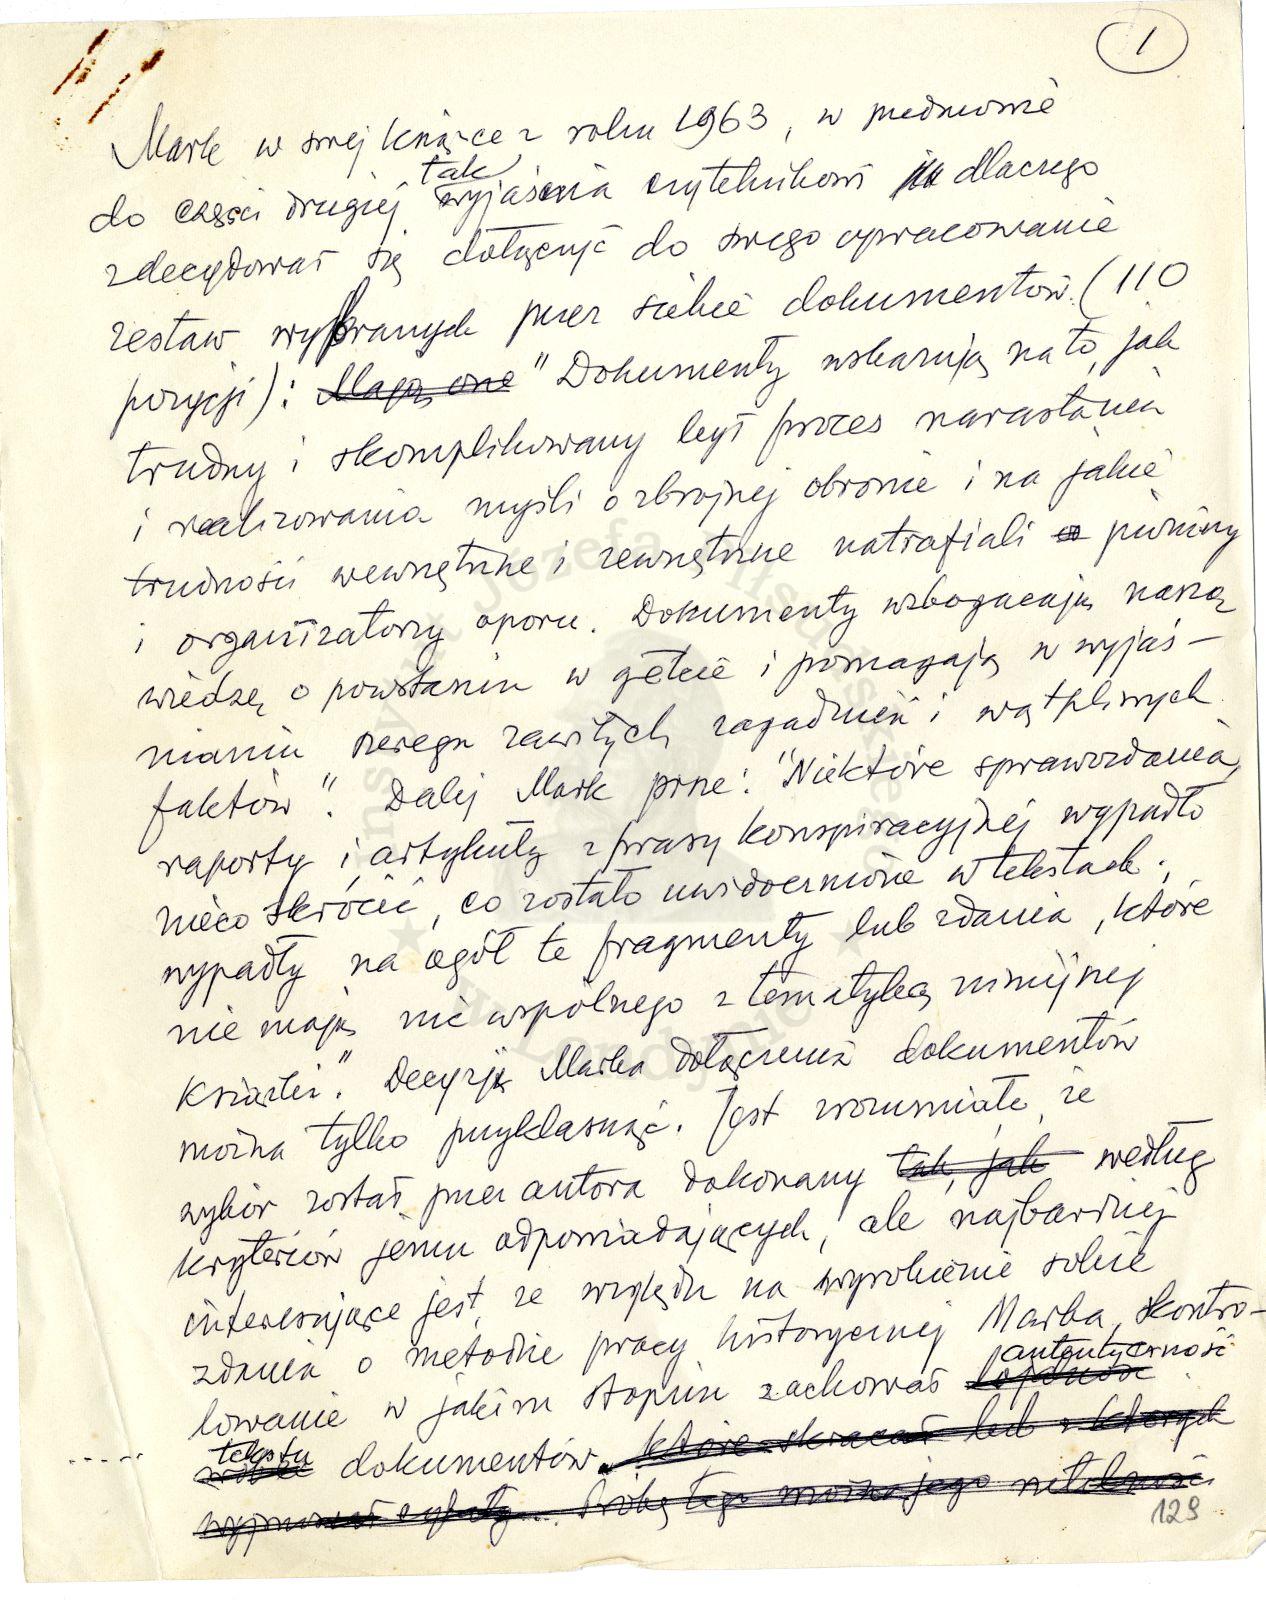 1
Mark w swej książce z roku 1963, w przedmowie
do części drugiej tak wyjaśnia czytelnikowi dlaczego
zdecydował się dołączyć do swego opracowanie
zestaw wybranych przez siebie dokumentów (110
pozycji): Mają one "Dokumenty wskazują na to, jak
trudny i skomplikowany był proces narastania
i realizowania myśli o zbrojnej obronie i na jakie
trudności wewnętrzne i zewnętrzne natrafiali pionierzy
i organizatorzy oporu. Dokumenty wzbogacają naszą
wiedzę o powstaniu w getcie i pomagają w wyjaś-
nianiu szeregu zawiłych zagadnień i wątpliwych
faktów". Dalej Mark pisze: "Niektóre sprawozdania,
raporty i artykuły z prasy konspiracyjnej wypadło
nieco skrócić, co zostało uwidocznione w tekstach;
wypadły na ogół te fragmenty lub zdania, które
nie mają nic wspólnego z tematyką niniejszej
książki". Decyzję Marka dołączenia dokumentów
można tylko przyklasnąć. Jest zrozumiałe, że
wybór został przez autora dokonany tak, jak według
kryteriów jemu odpowiadających, ale najbardziej
interesujące jest, ze względu na wyrobienie sobie
zdania o metodzie pracy historycznej Marka, skontro-
lowanie w jakim stopniu zachował autentyczność
tekstu dokumentów. które skracał lub z których
cytaty... Próbę tego można jego rzetelności
129
Instytut Józefa Piłsudskiego
w Londynie